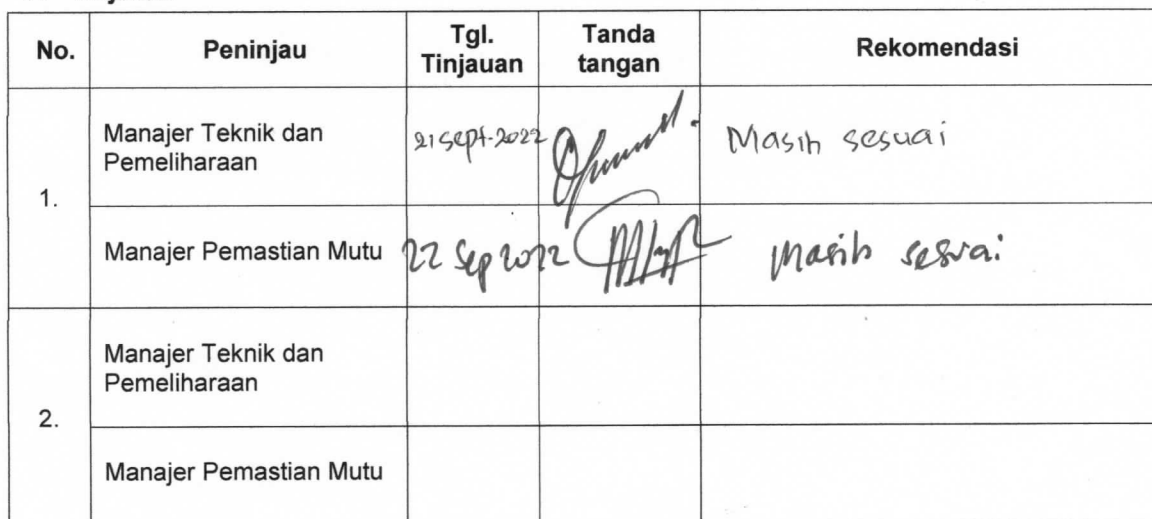 No. Peninjau Tgl. Tinjauan Tanda tangan Rekomendasi
1.
Manajer Teknik dan
Pemeliharaan
21 Sept-2022
Masih sesuai
Manajer Pemastian Mutu
22 Sep 2022
Masih sesuai
2.
Manajer Teknik dan
Pemeliharaan
Manajer Pemastian Mutu